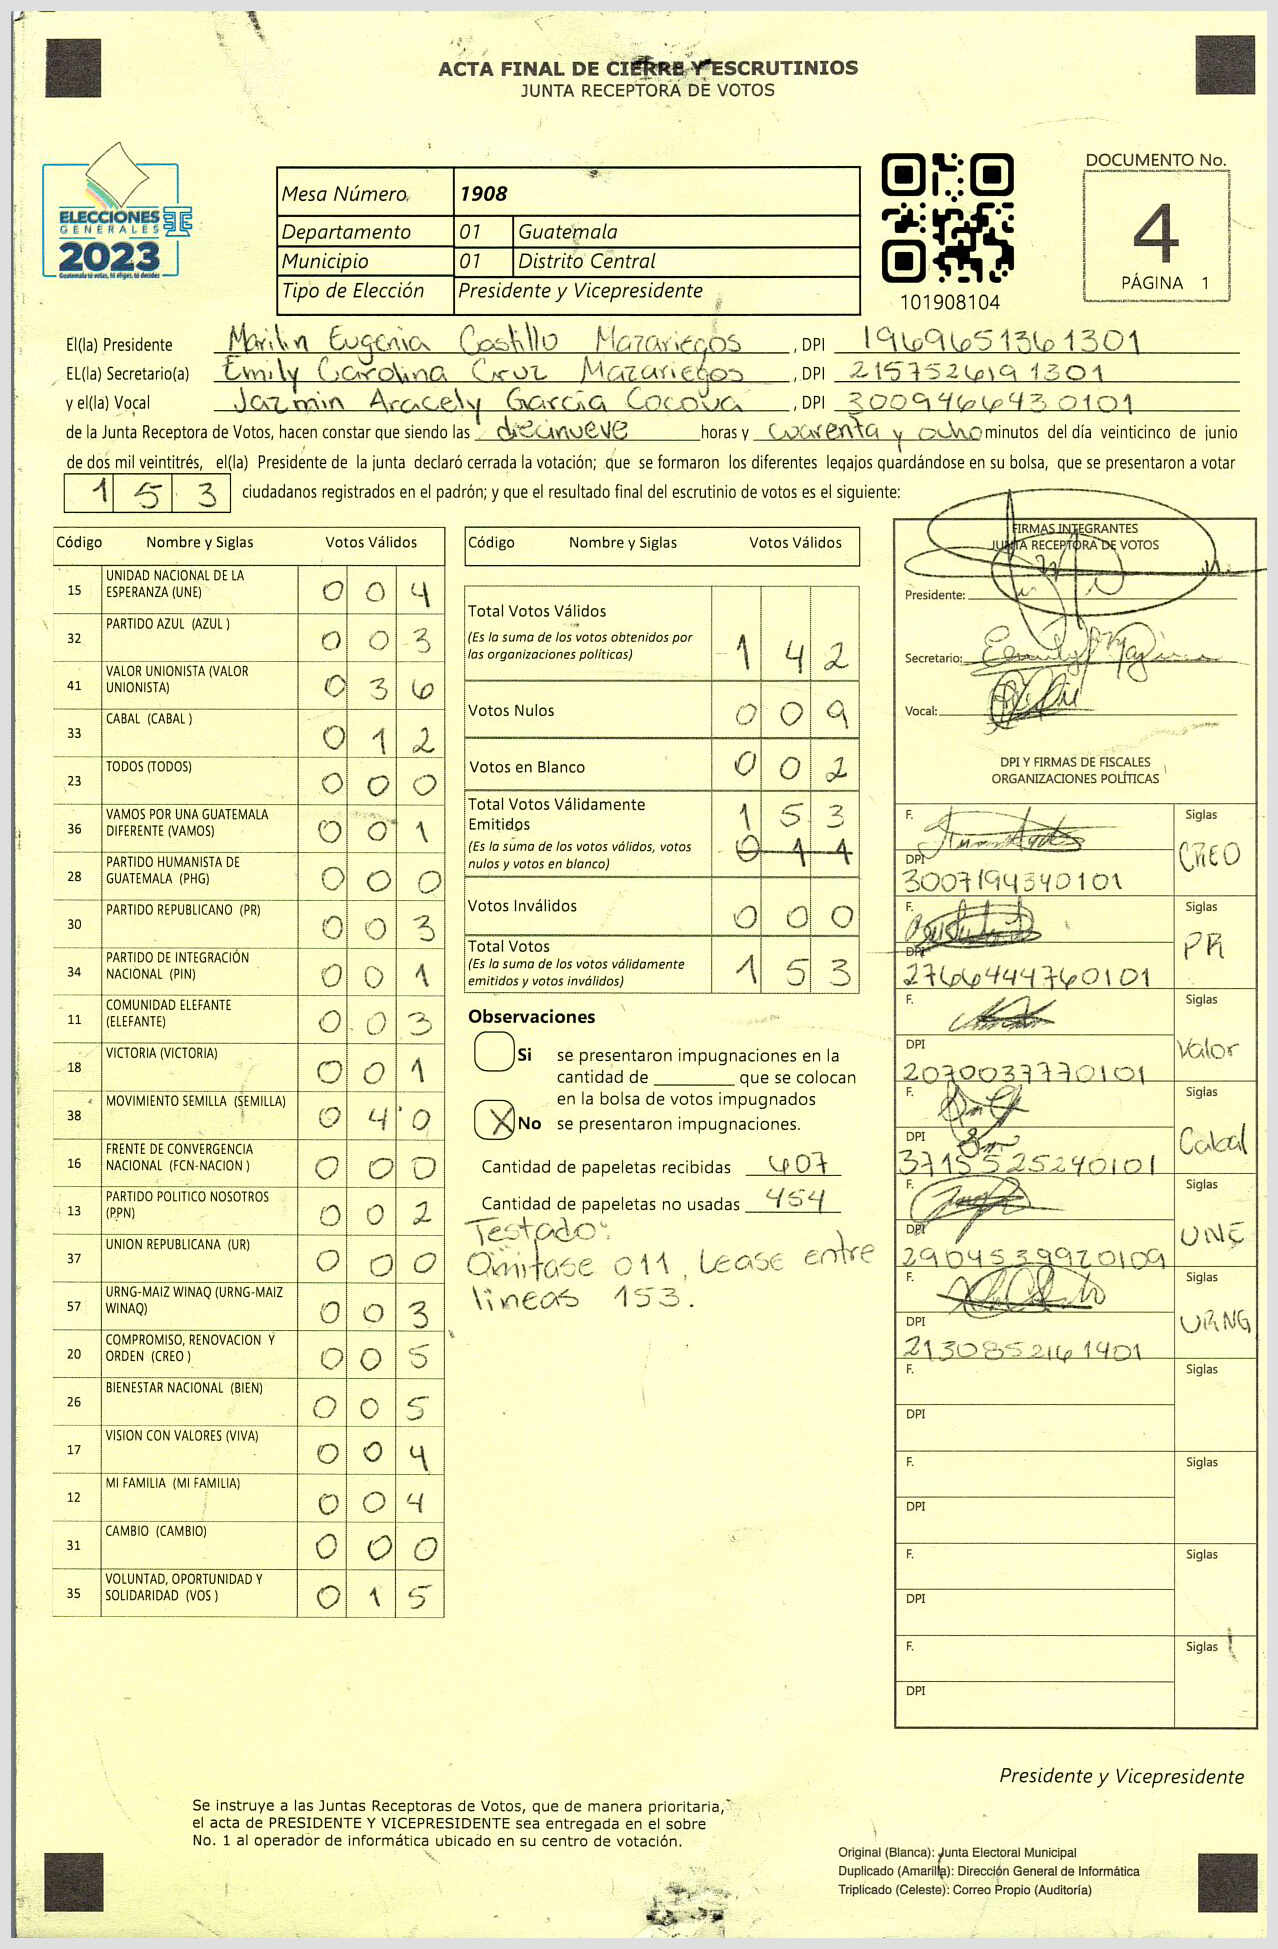 ACTA FINAL DE CIERRE Y ESCRUTINIOS
JUNTA RECEPTORA DE VOTOS
ELECCIONES
GENERALES
2023
Guatemala tú votas, tú eliges, tú decides
Mesa Número 1908
Departamento 01 Guatemala
Municipio 01 Distrito Central
Tipo de Elección Presidente y Vicepresidente
101908104
DOCUMENTO No.
4
PÁGINA 1
El(la) Presidente Marilin Eugenia Castillo Mazariegos , DPI 1969651361301
EL(la) Secretario(a) Emily Carolina Cruz Mazariegos , DPI 2157526191301
y el(la) Vocal Jazmin Aracely García Cocova , DPI 3009466430101
de la Junta Receptora de Votos, hacen constar que siendo las diecinueve horas y cuarenta y ocho minutos del día veinticinco de junio
de dos mil veintitrés, el(la) Presidente de la junta declaró cerrada la votación; que se formaron los diferentes legajos guardándose en su bolsa, que se presentaron a votar
153 ciudadanos registrados en el padrón; y que el resultado final del escrutinio de votos es el siguiente:
Código Nombre y Siglas Votos Válidos
15 UNIDAD NACIONAL DE LA ESPERANZA (UNE) 004
32 PARTIDO AZUL (AZUL ) 003
41 VALOR UNIONISTA (VALOR UNIONISTA) 036
33 CABAL (CABAL ) 012
23 TODOS (TODOS) 000
36 VAMOS POR UNA GUATEMALA DIFERENTE (VAMOS) 001
28 PARTIDO HUMANISTA DE GUATEMALA (PHG) 000
30 PARTIDO REPUBLICANO (PR) 003
34 PARTIDO DE INTEGRACIÓN NACIONAL (PIN) 001
11 COMUNIDAD ELEFANTE (ELEFANTE) 003
18 VICTORIA (VICTORIA) 001
38 MOVIMIENTO SEMILLA (SEMILLA) 040
16 FRENTE DE CONVERGENCIA NACIONAL (FCN-NACION ) 000
13 PARTIDO POLITICO NOSOTROS (PPN) 002
37 UNION REPUBLICANA (UR) 000
57 URNG-MAIZ WINAQ (URNG-MAIZ WINAQ) 003
20 COMPROMISO, RENOVACION Y ORDEN (CREO ) 005
26 BIENESTAR NACIONAL (BIEN) 005
17 VISION CON VALORES (VIVA) 004
12 MI FAMILIA (MI FAMILIA) 004
31 CAMBIO (CAMBIO) 000
35 VOLUNTAD, OPORTUNIDAD Y SOLIDARIDAD (VOS ) 015
Código Nombre y Siglas Votos Válidos
Total Votos Válidos 142
(Es la suma de los votos obtenidos por
las organizaciones políticas)
Votos Nulos 009
Votos en Blanco 002
Total Votos Válidamente Emitidos 153
(Es la suma de los votos válidos, votos
nulos y votos en blanco) 011
Votos Inválidos 000
Total Votos 153
(Es la suma de los votos válidamente
emitidos y votos inválidos)
Observaciones
Si se presentaron impugnaciones en la
cantidad de ________ que se colocan
en la bolsa de votos impugnados
X No se presentaron impugnaciones.
Cantidad de papeletas recibidas 607
Cantidad de papeletas no usadas 454
Testado:
Omitase 011, Lease entre
lineas 153.
FIRMAS INTEGRANTES
JUNTA RECEPTORA DE VOTOS
Presidente:
Secretario:
Vocal:
DPI Y FIRMAS DE FISCALES
ORGANIZACIONES POLÍTICAS
F. Siglas
DPI CREO
3007194340101
F. Siglas
DPI PR
2766444760101
F. Siglas
DPI Valor
2070037770101
F. Siglas
DPI Cabal
3715525240101
F. Siglas
DPI UNE
2904539920109
F. Siglas
DPI URNG
2130852161401
F. Siglas
DPI
F. Siglas
DPI
F. Siglas
DPI
F. Siglas
DPI
Presidente y Vicepresidente
Se instruye a las Juntas Receptoras de Votos, que de manera prioritaria,
el acta de PRESIDENTE Y VICEPRESIDENTE sea entregada en el sobre
No. 1 al operador de informática ubicado en su centro de votación.
Original (Blanca): Junta Electoral Municipal
Duplicado (Amarilla): Dirección General de Informática
Triplicado (Celeste): Correo Propio (Auditoría)